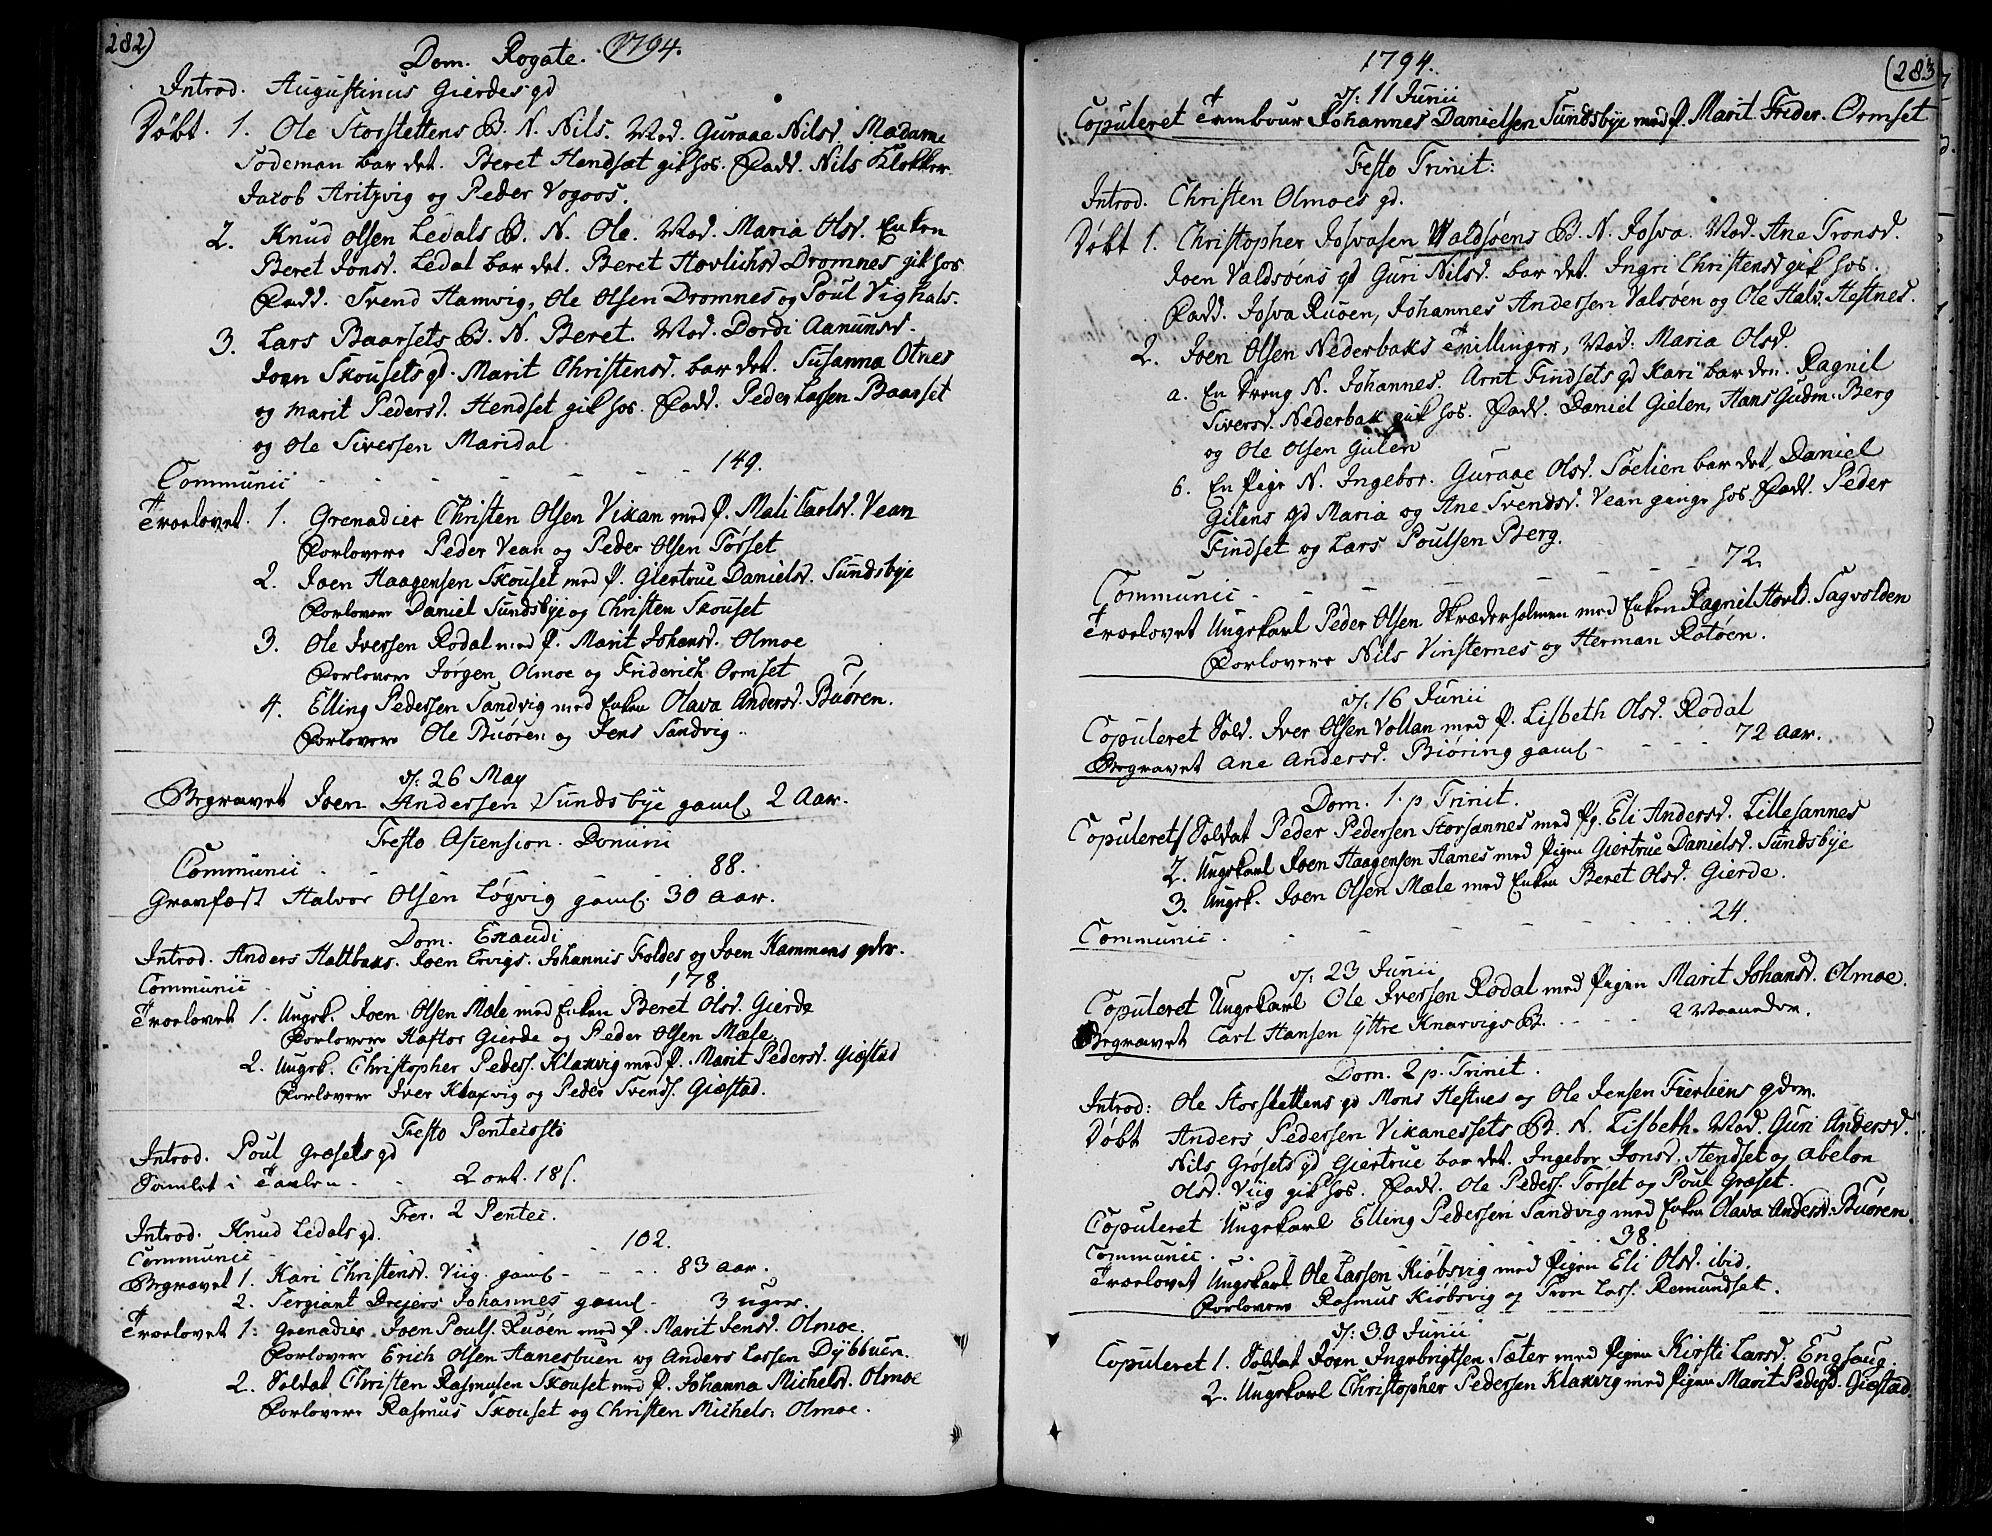 282)
Dom. Rogate. 1794.
Introd. Augustinus Gierdes qd
Døbt. 1. Ole Storslettens B. N. Nils. Mod. Guraae Nilsd. Madame
Sodeman bar det. Beret Hendsæt gik hos. Fadd. Nils Klokker
Jacob Aritzvig og Peder Vogoos.
2. Knud Olsen Ledals B. N. Ole. Mod. Maria Olsd. Enken
Beret Jonsd. Ledal bar det. Beret Hovlichsd Dromnes gik hos
Fadd. Svend Hamvig, Ole Olsen Dromnes og Poul Vighals.
3. Lars Baarsets B. N. Beret. Mod. Dordi Aanunsd.
Joen Skousets qd. Marit Christensd. bar det. Susanna Otnes
og Marit Pedersd. Hendset gik hos. Fadd. Peder Larsen Baarset
og Ole Siversen Maridal
Communic - - - - 149.
Troelovet. 1. Grenadier Christen Olsen Vikan med P. Mali Carlsd. Vean
Forlovere Peder Vean og Peder Olsen Torset
2. Joen Haagensen Skouset med P. Giertrue Danielsd. Sundsbye
Forlovere Daniel Sundsbye og Christen Skouset
3. Ole Iversen Rodal med P. Marit Johansd. Olmoe
Forlovere Jørgen Olmoe og Friderich Ormset
4. Elling Pedersen Sandvig med Enken Olava Andersd. Buøren.
Forlovere Ole Buøren og Jens Sandvig.
d: 26 May
Begravet Joen Andersen Sundsbye gaml. 2 Aar.
Festo Asension. Domini
Communic - - - - 88.
Gravfæst Halvor Olsen Løgvig gaml. 30 Aar.
Dom. Exaudi
Introd. Anders Haltbaks. Joen Ervigs. Johannis Foldes og Joen Kammens qdr.
Communic - - - 178
Troelovet 1. Ungk. Joen Olsen Mæle med Enken Beret Olsd. Gierde
Forlovere Haftor Gierde og Peder Olsen Mæle
2. Ungk. Christopher Peders. Klaxvig med P. Marit Pedersd. Giæstad
Forlovere Iver Klaxvig og Peder Svends. Giæstad.
Festo Pentecoste
Introd. Poul Græsets qd
Samlet i Tavlen - - 2 ort. 18 s.
Fer. 2 Pentec.
Introd. Knud Ledals qd.
Communic - - - 102.
Begravet 1. Kari Christensd. Viig. gaml - - - 83 Aar.
2. Sergiant Drejers Johannes gaml - 3 Uger.
Troelovet 1. Grenadier Joen Pouls. Ruøen med P. Marit Jensd. Olmoe.
Forlovere Erich Olsen Aanesbuen og Anders Larsen Dybbuen.
2. Soldat Christen Rasmusen Skouset med P. Johanna Michelsd. Olmoe
Forlovere Rasmus Skouset og Christen Michels: Olmoe.
1794.
(283
d: 11 Junii
Copuleret Tambour Johannes Danielsen Sundsbye med P. Marit Frider. Ormset
Festo Trinit:
Introd. Christen Olmoes qd.
Døbt 1. Christopher Josvasen Valdsøens B. N. Josva. Mod. Ane Tronsd.
Joen Valdsøens qd Guri Nilsd. bar det. Ingri Christensd gik hos.
Fadd. Josva Ruøen, Johannes Andersen Valsøen og Ole Hals. Hestnes.
2. Joen Olsen Nederbaks Tvillinger, Mod: Maria Olsd.
a. En Dreng N. Johannes. Arnt Findsets qd Kari bar den. Ragnil
Siversd. Nederbak gik hos. Fadd. Daniel Gielen, Hans Gudm. Berg
og Ole Olsen Gulen
b. En Pige N. Ingebor. Guraae Olsd. Søelien bar det, Daniel
Gilens qd Maria og Ane Svendsd. Vean ginge hos. Fadd. Peder
Findset og Lars Poulsen Berg.
Communic - - - - 72.
Troelovet Ungekarl Peder Olsen Skræderholmen med Enken Ragnil Hovld. Sagvolden
Forlovere Nils Vinsternes og Herman Rotøen.
d: 16 Junii
Copuleret Sold. Iver Olsen Vollan med P. Lisbeth Olsd. Rodal
Begravet Ane Andersd. Biøring gaml - - - 72 Aar.
Dom. 1. p. Trinit.
Copuleret 1 Soldat Peder Pedersen Storsannes med Pg. Eli Andersd. Lillesannes
2. Ungekarl Joen Haagensen Hanes med Pigen Giertrue Danielsd. Sundsbye
3. Ungk. Joen Olsen Mæle med Enken Beret Olsd. Gierde.
Communic. - - - - 24.
d: 23 Junii
Copuleret Ungekarl Ole Iversen Rodal med Pigen Marit Johansd. Olmoe.
Begravet Carl Hansen Yttre Knarvigs B. - - - 2 Maaneder.
Dom. 2 p. Trinit.
Introd: Ole Storslettens qd Mons Hestnes og Ole Jensen Fierliens qdr.
Døbt Anders Pedersen Vikanessets B. N. Lisbeth. Mod. Guri Andersd.
Nils Grøsets qd Giertrue bar det. Ingebor Jonsd. Hendset og Abelon
Olsd. Viig gik hos. Fadd. Ole Peders. Torset og Poul Græset.
Copuleret Ungekarl Elling Pedersen Sandvig med Enken Olava Andersd. Buøren
Communic. - - - 38.
Troelovet Ungekarl Ole Larsen Kiøbsvig med Pigen Eli Olsd. ibid.
Forlovere Rasmus Kiøbsvig og Tron Lars. Remundset.
d: 30 Junii
Copuleret 1. Soldat Joen Ingebrigtsen Sæter med Pigen Kirsti Larsd. Engsaug.
2. Ungekarl Christopher Pedersen Klaxvig med Pigen Marit Pedersd. Giæstad